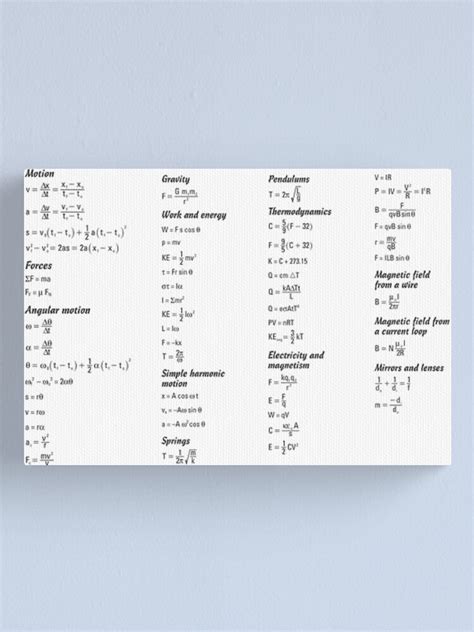 Motion
v = Δx/Δt = (x_f − x_i)/(t_f − t_i)
a = Δv/Δt = (v_f − v_i)/(t_f − t_i)
s = v_i(t_f − t_i) + 1/2 a(t_f − t_i)²
v_f² − v_i² = 2as = 2a(x_f − x_i)
Forces
ΣF = ma
F_F = μ F_N
Angular motion
ω = Δθ/Δt
α = Δω/Δt
θ = ω_i(t_f − t_i) + 1/2 α(t_f − t_i)²
ω_f² − ω_i² = 2αθ
s = rθ
v = rω
a = rα
a_c = v²/r
F_c = mv²/r
Gravity
F = G m₁m₂/r²
Work and energy
W = F s cos θ
p = mv
KE = 1/2 mv²
τ = Fr sin θ
στ = Iα
I = Σmr²
KE = 1/2 Iω²
L = Iω
F = −kx
T = 2π/ω
Simple harmonic
motion
x = A cos ωt
v_x = −Aω sin θ
a = −A ω² cos θ
Springs
T = 1/2π √(m/k)
Pendulums
T = 2π √(l/g)
Thermodynamics
C = 5/9 (F − 32)
F = 9/5 (C + 32)
K = C + 273.15
Q = cm △T
Q = kAδTt/L
Q = eσAtT⁴
PV = nRT
KE_avg = 3/2 kT
Electricity and
magnetism
F = kq₁q₂/r²
E = F/q
W = qV
C = κε₀A/s
E = 1/2 CV²
V = IR
P = IV = V²/R = I²R
B = F/(qvB sin θ)
F = qvB sin θ
r = mv/qB
F = ILB sin θ
Magnetic field
from a wire
B = μ₀I/2πr
Magnetic field from
a current loop
B = N μ₀I/2R
Mirrors and lenses
1/d₀ + 1/d_i = 1/f
m = −d_i/d₀